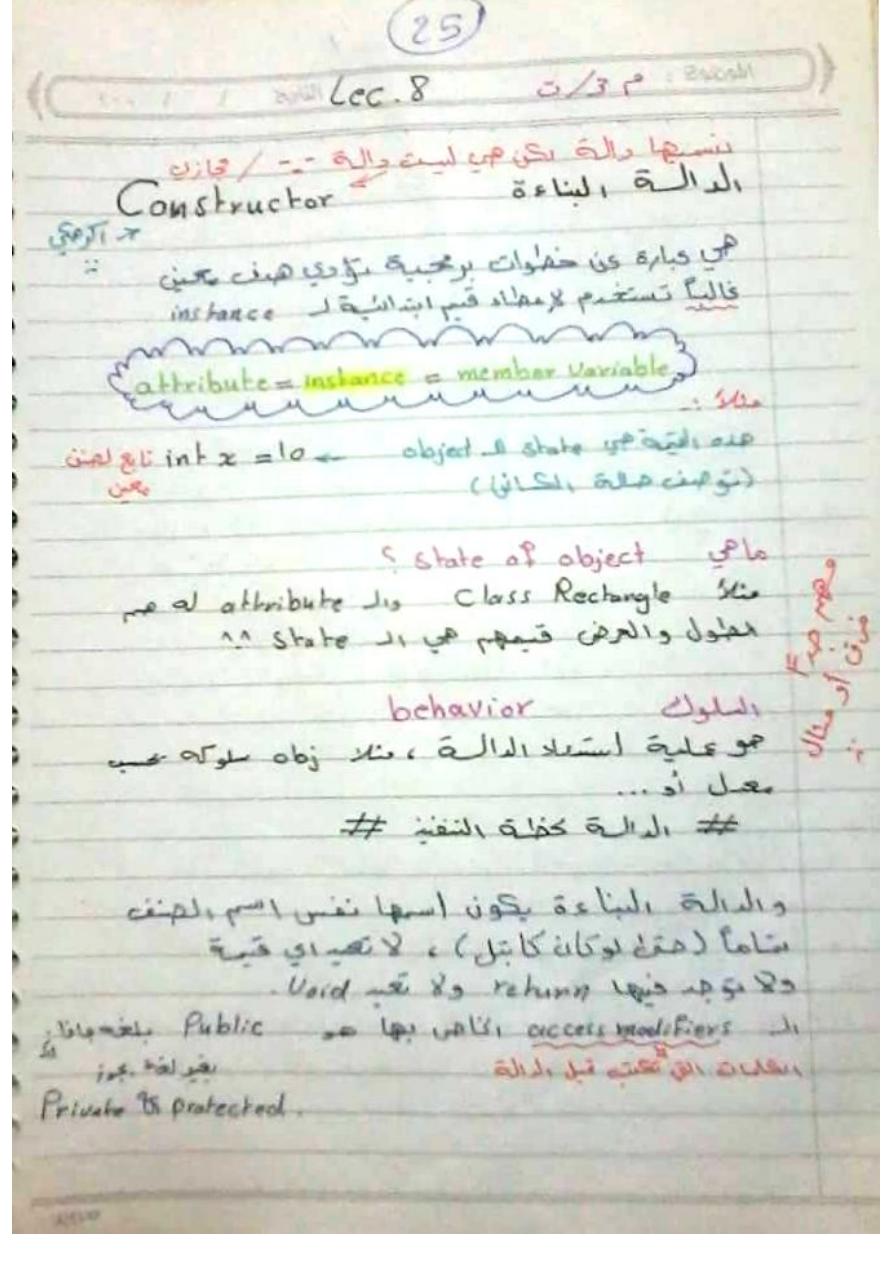 25
الموضوع : م3/ت Lec.8 التاريخ / /
نسميها دالة لكن هي ليست دالة -_- / مجازن
الدالة البناءة Constructor
هي عبارة عن خطوات برمجية تؤدي هدف معين
غالباً تستخدم لإعطاء قيم ابتدائية لـ instance
attribute = instance = member variable
مثلاً :-
هذه القيمة هي state الـ object ← int x = 10 تابع لصنف
معين
(توصف حالة الكائن)
ماهي state of object ؟
مثلاً Class Rectangle والـ attribute له هم
الطول والعرض قيمهم هي الـ State ^^
مهم جداً
فرق أو مثال
السلوك behavior
هو عملية استدعاء الدالة ، مثلا سلوكه يحسب
معدل أو ...
# الدالة لحظة التنفيذ #
والدالة البناءة يكون اسمها نفس اسم الصنف
تماماً (حتى لو كان كابتل) ، لا تعيد اي قيمة
ولا توجد فيها return ولا تعيد Void.
الـ access modifiers الخاص بها هو Public بلغة جافا
الكلمات التي تكتب قبل الدالة
بغير لغة يجوز
Private or protected.